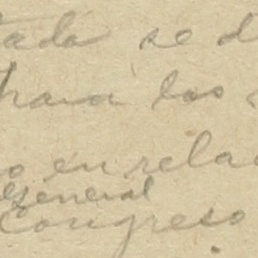 tada se d
hara los
o en rela
General
Congreso